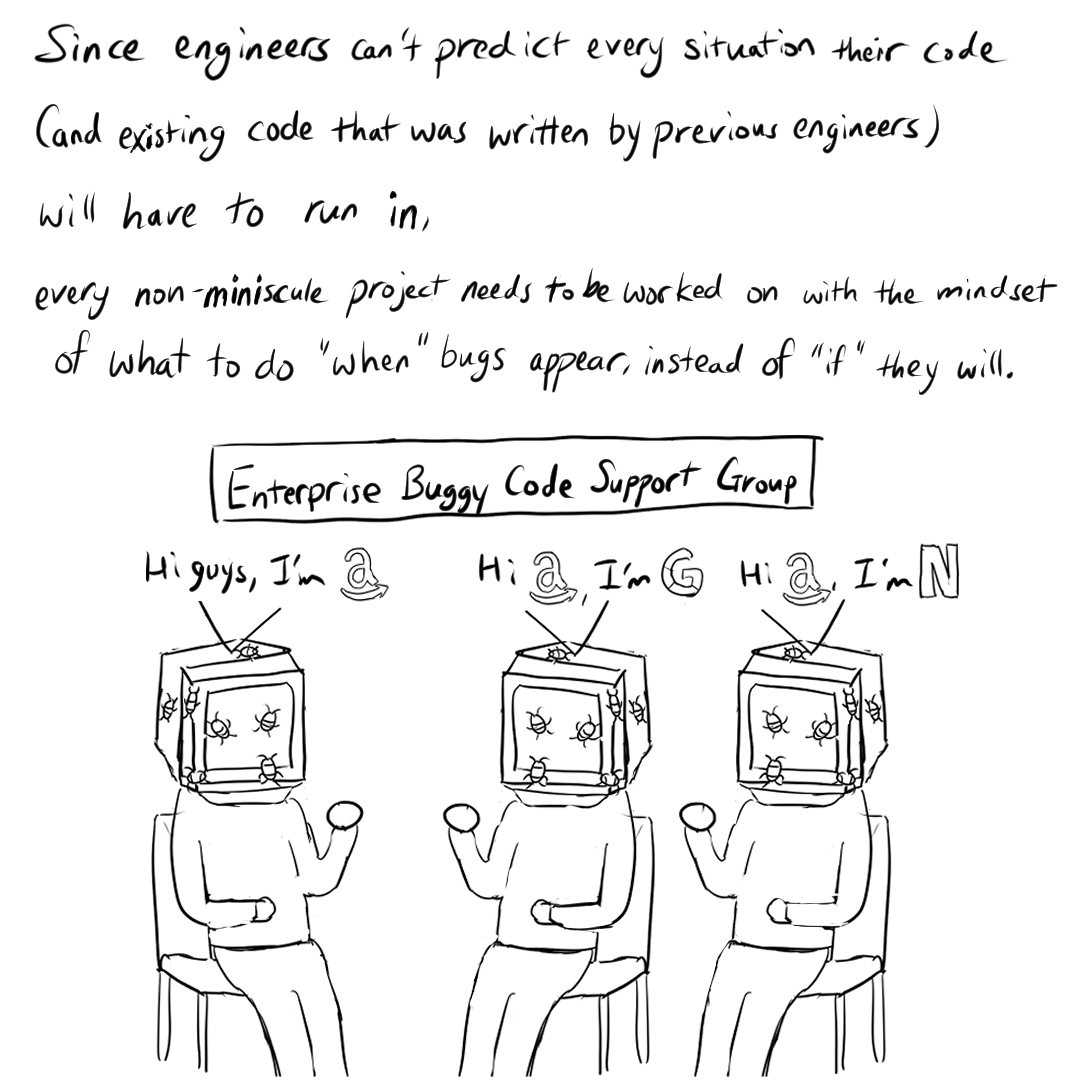 Since engineers can't predict every situation their code
(and existing code that was written by previous engineers)
will have to run in,
every non-miniscule project needs to be worked on with the mindset
of what to do "when" bugs appear, instead of "if" they will.
Enterprise Buggy Code Support Group
Hi guys, I'm a
Hi a, I'm G
Hi a, I'm N